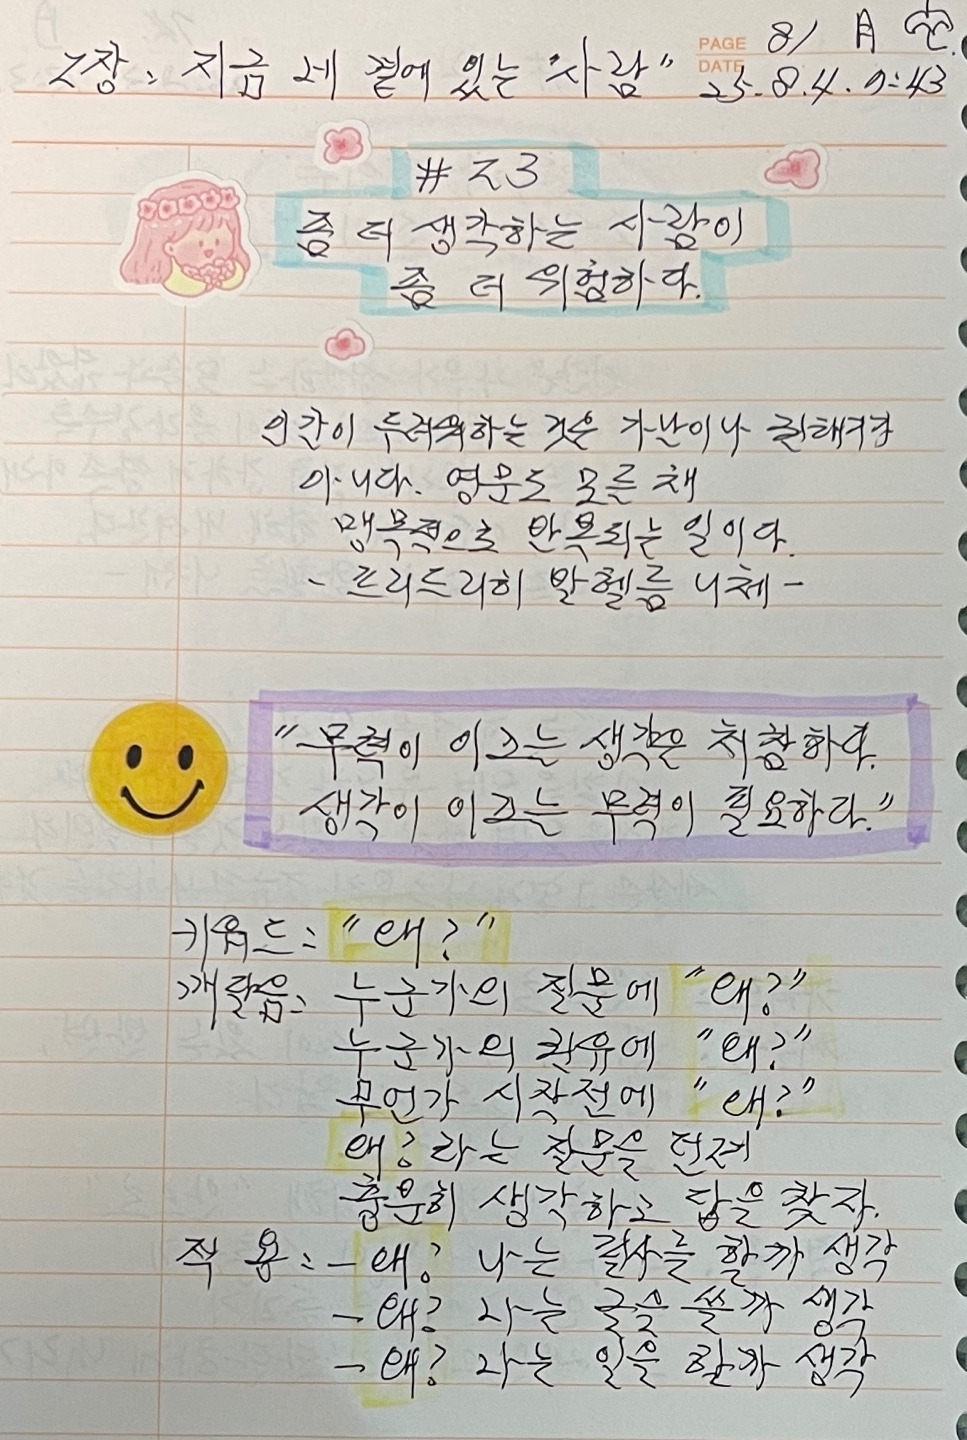 PAGE 81 月
2장: 지금 네 곁에 있는 "사람"
DATE 25. 8. 4. 7:43
# 23
좀 더 생각하는 사람이
좀 더 위험하다.
인간이 두려워하는 것은 가난이나 질책이
아니다. 영문도 모를 채
맹목적으로 반복되는 일이다.
- 프리드리히 빌헬름 니체 -
"무력이 이끄는 생각은 처참하다.
생각이 이끄는 무력이 필요하다."
키워드: "왜?"
깨달음: 누군가의 질문에 "왜?"
누군가의 권유에 "왜?"
무언가 시작전에 "왜?"
왜? 라는 질문을 던져
충분히 생각하고 답을 찾자.
적 용: - 왜? 나는 필사를 할까 생각
- 왜? 나는 글을 쓸까 생각
- 왜? 나는 일을 할까 생각